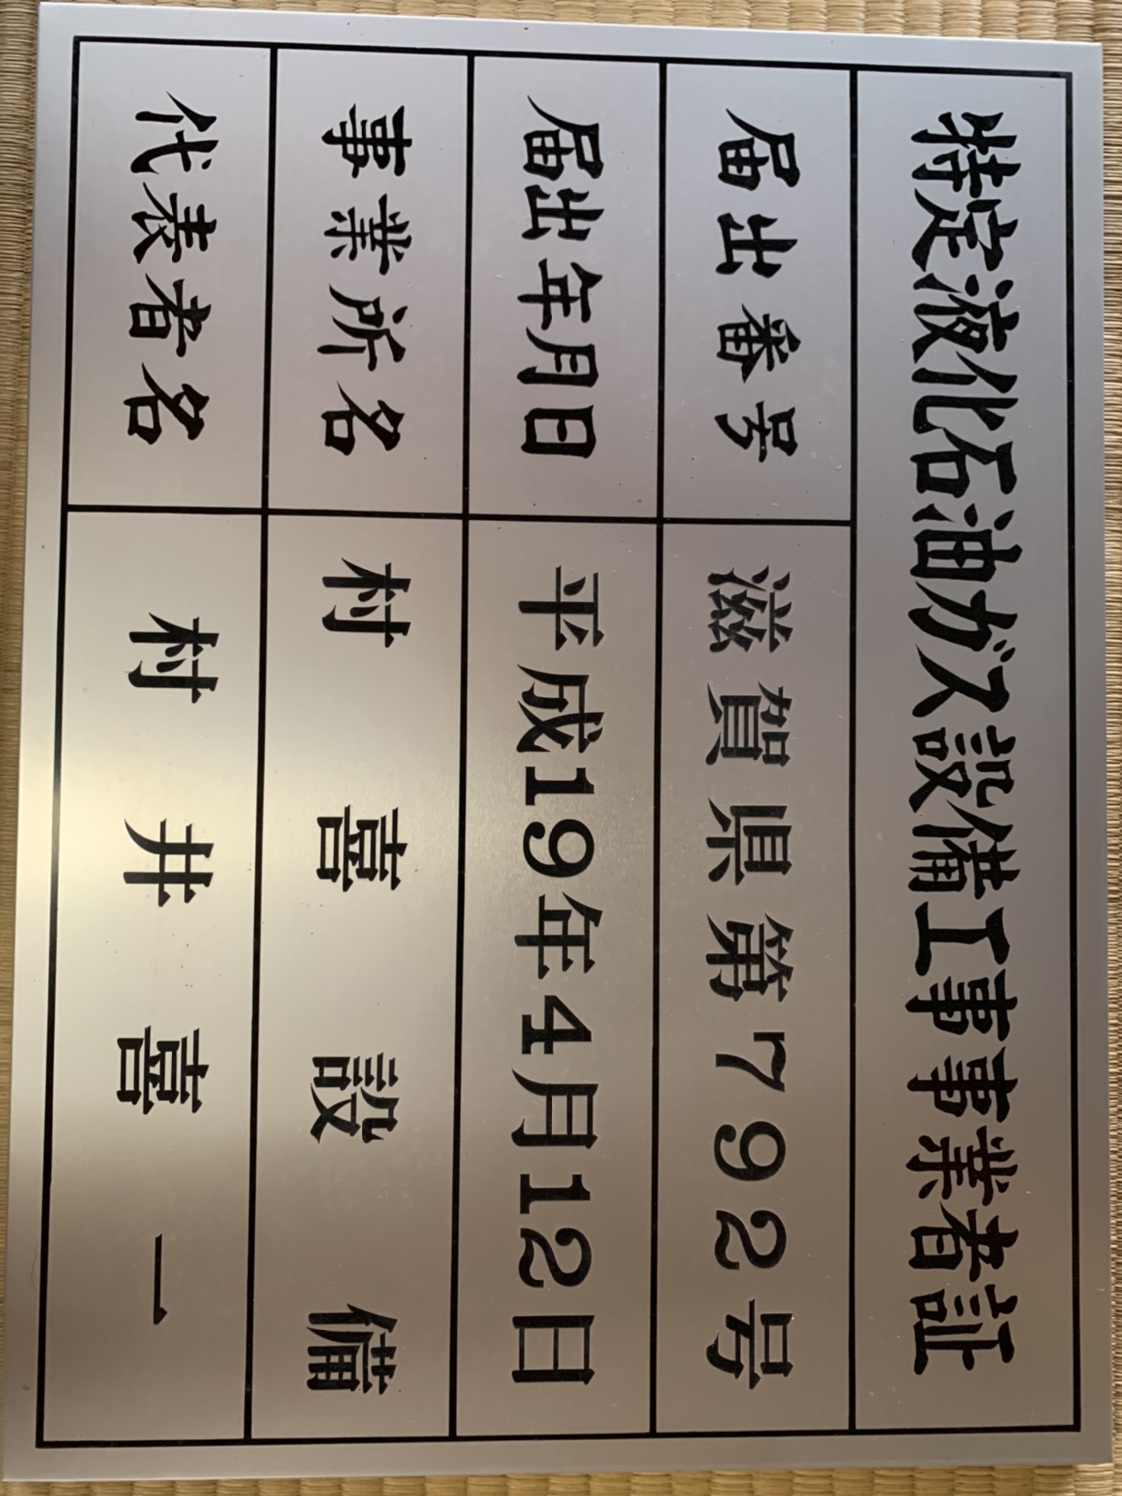 特定液化石油ガス設備工事事業者証
届出番号 滋賀県第792号
届出年月日 平成19年4月12日
事業所名 村喜設備
代表者名 村井喜一